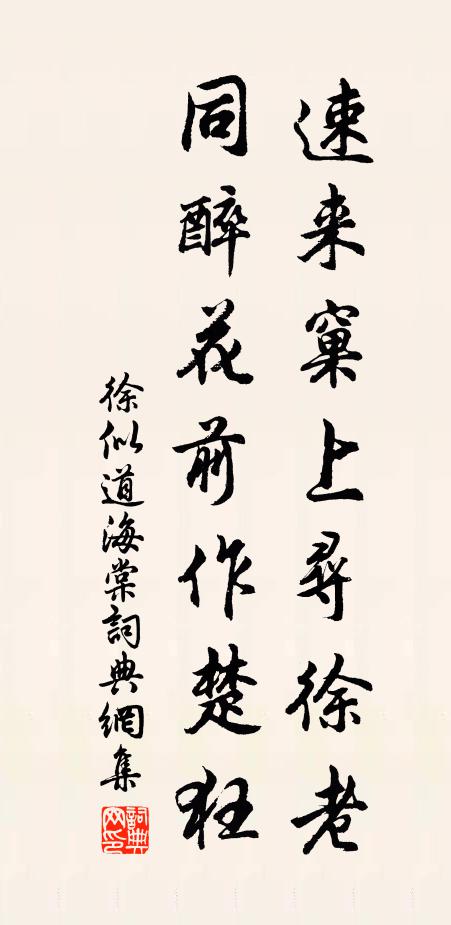 速来窠上尋徐老
同醉花前作楚狂
徐似道海棠詞典網集
詞典網印